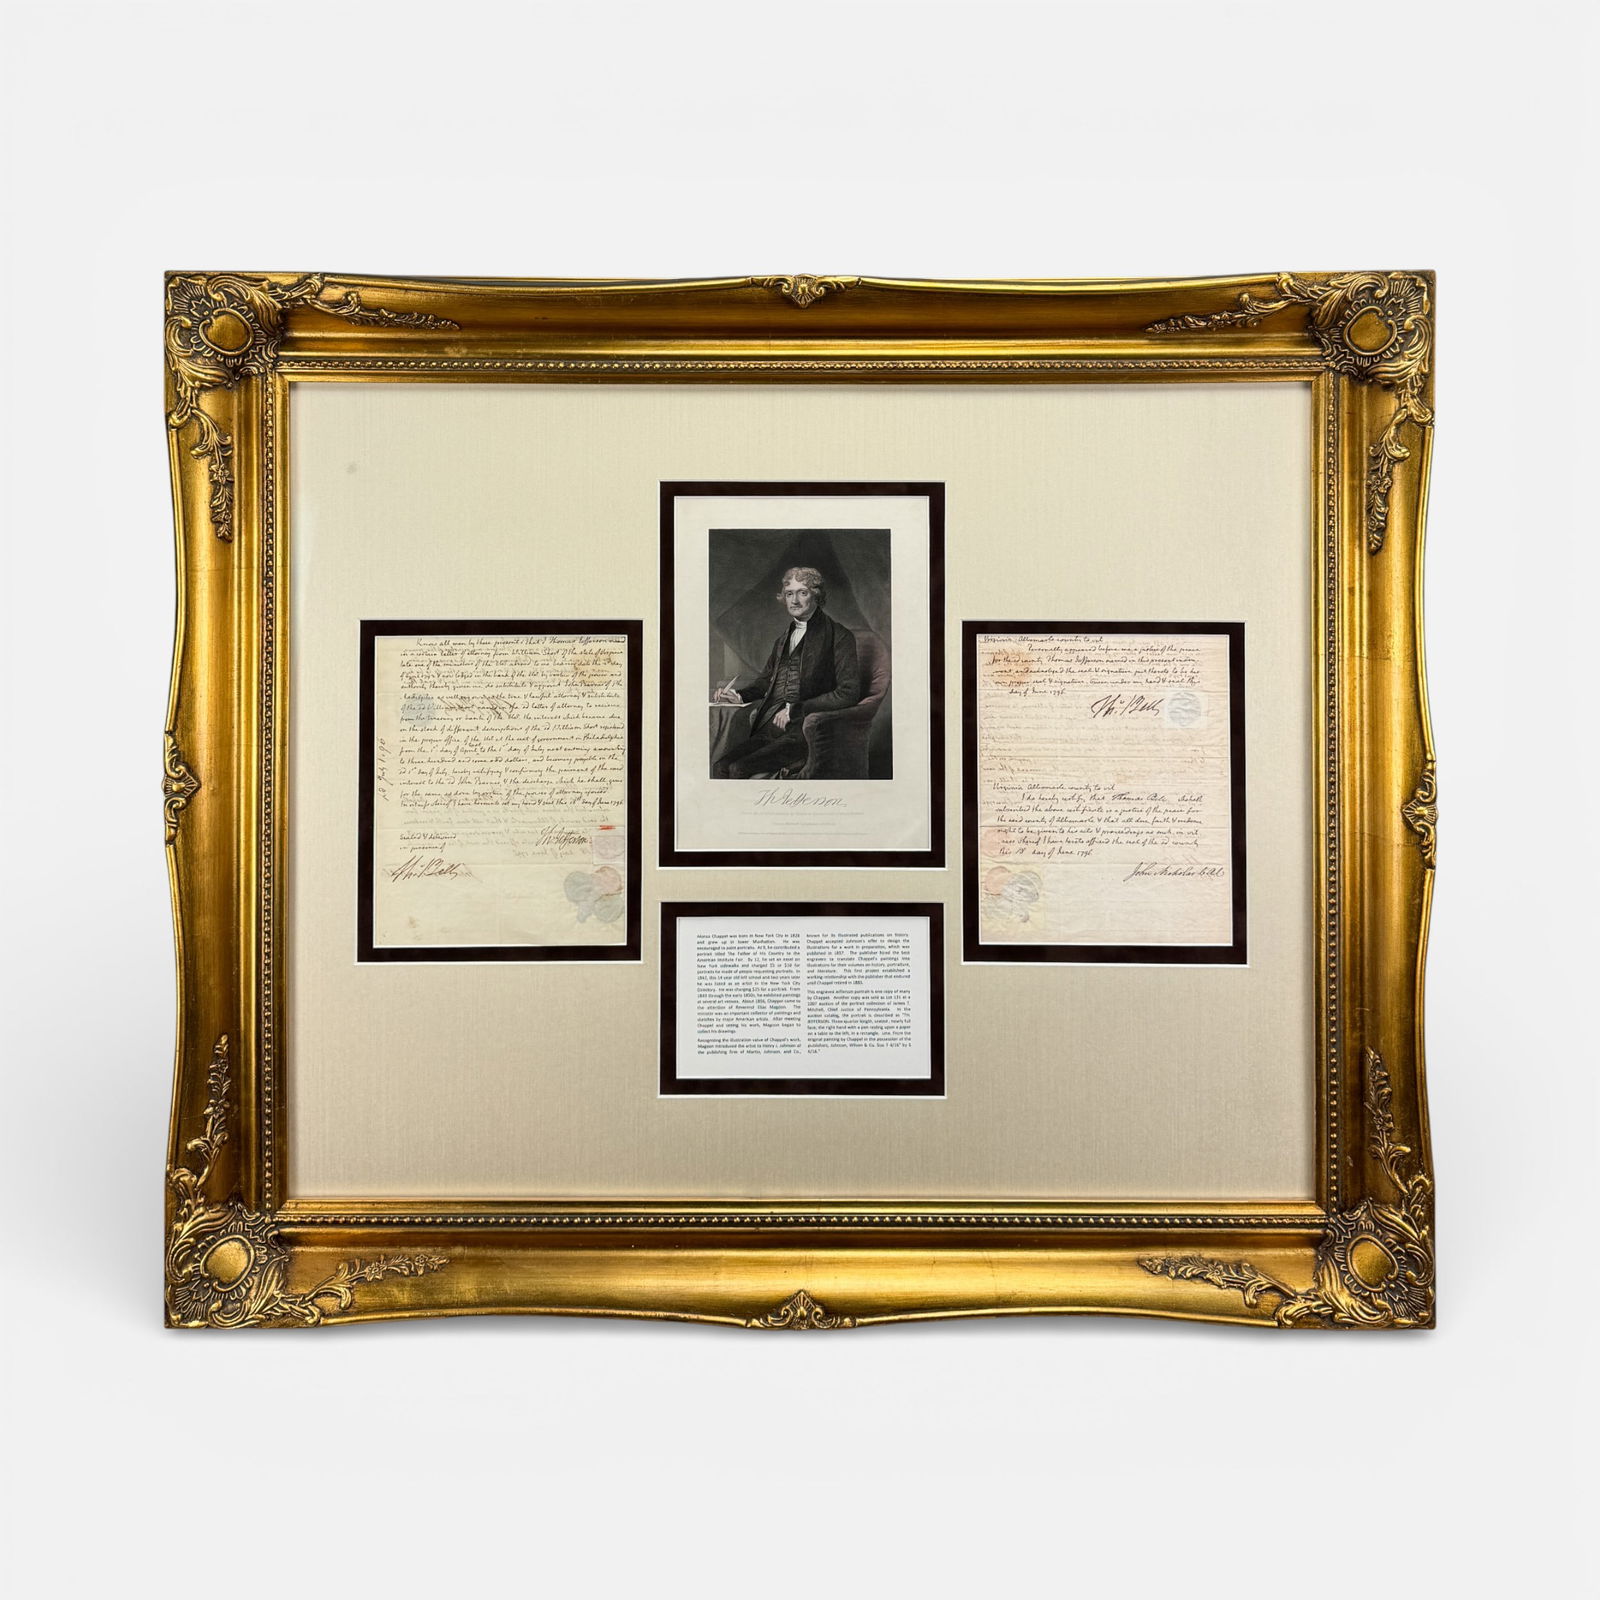 Know all men by these presents that I Thomas Jefferson named
in a certain letter of attorney from William Short of the state of Virginia
late one of the ministers of the U.S. abroad to me bearing date the day
of April & now lodged in the bank of the U.S. by virtue of the power and
authority thereby given me, do substitute & appoint John Barnes of Ph
iladelphia as well my own as the true & lawful attorney & substitute
of the sd William Short named in the sd letter of attorney to receive
from the treasury or bank of the U.S. the interest which became due
on the stock of different descriptions of the sd William Short registered
in the proper office of the U.S. at the seat of government in Philadelphia
from the 1st day of April last to the 1st day of July next ensuing amounting
to three hundred and some odd dollars, and becoming payable on the
sd 1st day of July, hereby ratifying & confirming the payment of the said
interest to the sd John Barnes & the discharge which he shall give
for the same as done by virtue of the power of attorney aforesd.
In witness whereof I have hereunto set my hand & seal this 18th day of June 1796
sealed & delivered
in presence of
Th: Jefferson
Tho. Bell
Th Jefferson
Virginia Albemarle county to wit
Personally appeared before me a justice of the peace
for the sd county Thomas Jefferson named in this present instru
ment and acknoleged the seal & signature put thereto to be his
own proper seal & signature. Given under my hand & seal this
day of June 1796
Tho. Bell
Virginia Albemarle county to wit
I do hereby certify that Thomas Bell who hath
subscribed the above certificate is a justice of the peace for
the said county of Albemarle & that all due faith & credence
ought to be given to his acts & proceedings as such, in wit
ness whereof I have hereto affixed the seal of the sd county
this 18 day of June 1796
John Nicholas
Alonzo Chappel was born in New York City in 1828
and grew up in lower Manhattan. He was
encouraged to paint portraits. At 9, he contributed a
portrait titled The Father of His Country to the
American Institute Fair. By 12, he set an easel on
New York sidewalks and charged $5 or $10 for
portraits he made of people requesting portraits. In
1842, this 14 year old left school and two years later
he was listed as an artist in the New York City
Directory. He was charging $25 for a portrait. From
1843 through the early 1850s, he exhibited paintings
at several art venues. About 1856, Chappel came to
the attention of Reverend Elias Magoon. The
minister was an important collector of paintings and
sketches by major American artists. After meeting
Chappel and seeing his work, Magoon began to
collect his drawings.
Recognizing the illustration value of Chappel's work,
Magoon introduced the artist to Henry J. Johnson of
the publishing firm of Martin, Johnson, and Co.,
known for its illustrated publications on history.
Chappel accepted Johnson's offer to design the
illustrations for a work in preparation, which was
published in 1857. The publisher hired the best
engravers to translate Chappel's paintings into
illustrations for their volumes on history, portraiture,
and literature. This first project established a
working relationship with the publisher that endured
until Chappel retired in 1885.
This engraved Jefferson portrait is one copy of many
by Chappel. Another copy was sold as Lot 131 at a
1907 auction of the portrait collection of James T.
Mitchell, Chief Justice of Pennsylvania. In the
auction catalog, the portrait is described as "TH.
JEFFERSON. Three quarter length, seated, nearly full
face, the right hand with a pen resting upon a paper
on a table to the left, in a rectangle. Line. From the
original painting by Chappel in the possession of the
publishers, Johnson, Wilson & Co. Size 7 4/16" by 5
4/16."